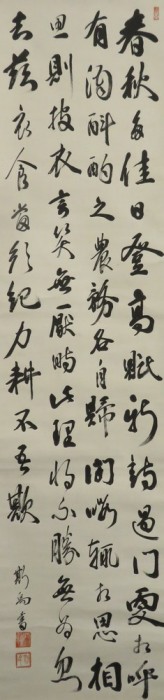 春秋多佳日登高賦新詩過門更相呼
有酒斟酌之農務各自歸閒暇輒相思相
思則披衣言笑無厭時此理將不勝無為忽
去茲衣食當須紀力耕不吾欺
書